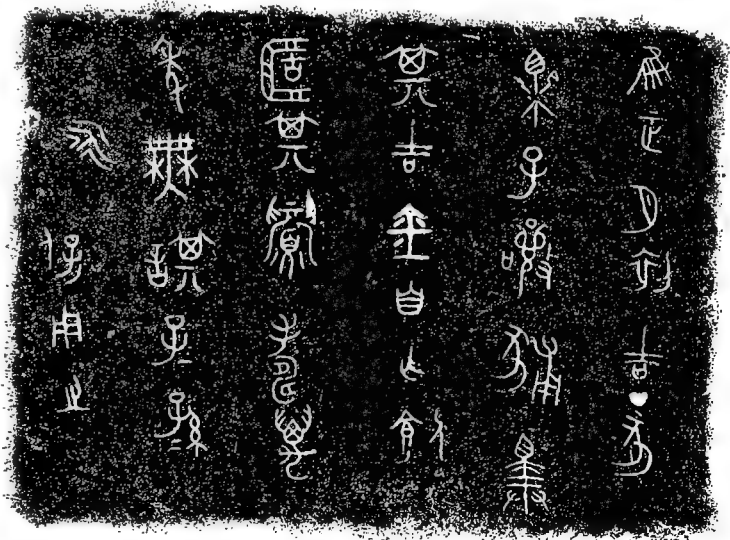 隹正月初吉丁亥
樂子嚷豧擇
其吉金自乍飤
簠其眉壽萬
年無諆子孫
永保用之